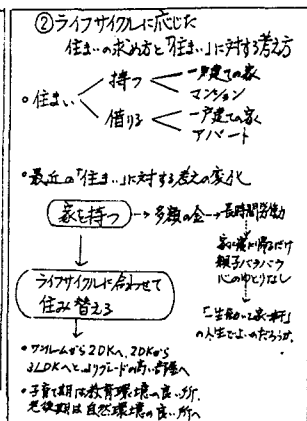 ②ライフサイクルに応じた
住まいの求め方と「住まい」に対する考え方
・住まい
持つ
一戸建ての家
マンション
借りる
一戸建ての家
アパート
・最近の「住まい」に対する考えの変化
家を持つ → 多額の金 → 長時間労働
家に寝に帰るだけ
親子バラバラ
心のゆとりなし
ライフサイクルに合わせて
住み替える
「一生かけて家一軒」
の人生でよいのだろうか。
・ワンルームから2DKへ、2DKから
3LDKへと、よりグレードの高い部屋へ
・子育て期は教育環境の良い所、
老後期は自然環境の良い所へ